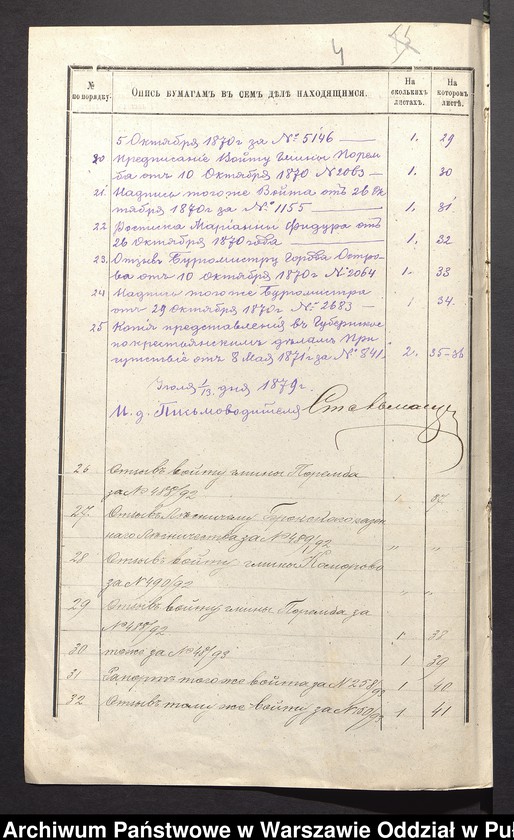 4
№ по порядку.
Опись бумагамъ въ семъ дѣлѣ находящимся.
На сколькихъ листахъ.
На которомъ листѣ.
5 Октября 1870 г за № 5146 — 1. 29
20 Предписаніе Войту гмины Порем
ба отъ 10 Октября 1870 № 2063 — 1. 30
21 Надпись тогоже Войта отъ 26 Ок
тября 1870 г за № 1155 — 1. 31
22 Росписка Маріанны Фидура отъ
26 Октября 1870 года — 1. 32
23. Отзывъ Бурмистру города Остро-
ва отъ 10 Октября 1870 г № 2064 1. 33
24 Надпись тогоже Бурмистра
отъ 29 Октября 1870 г. № 2683 — 1 34.
25 Копія представленія въ Губернское
по крестьянскимъ дѣламъ При
сутствіе отъ 8 Мая 1871 г за № 841. 2. 35-36
Іюля 1/13 дня 1879 г.
И. д. Письмоводителя
26 Отзывъ войту гмины Поремба
за № 488/92 37
27 Отзывъ Лѣсничему казен
наго Лѣсничества за № 489/92 " "
28 Отзывъ войту гмины
за № 490/92 " "
29 Отзывъ войту гмины Поремба за
/92 1 38
30 тоже за № 48/93 1 39
31 Рапортъ того же войта за № 258/93 1 40
32 Отзывъ тому же войту за № 50/93 1. 41
Archiwum Państwowe w Warszawie Oddział w Puł